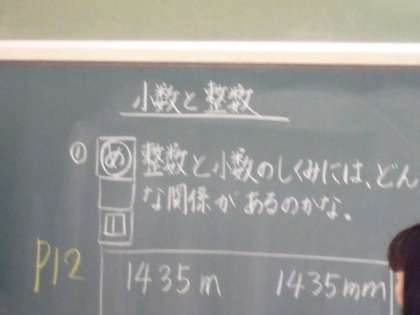 小数と整数
① め 整数と小数のしくみには、どん
な関係があるのかな。
1
P12
1435m 1435mm